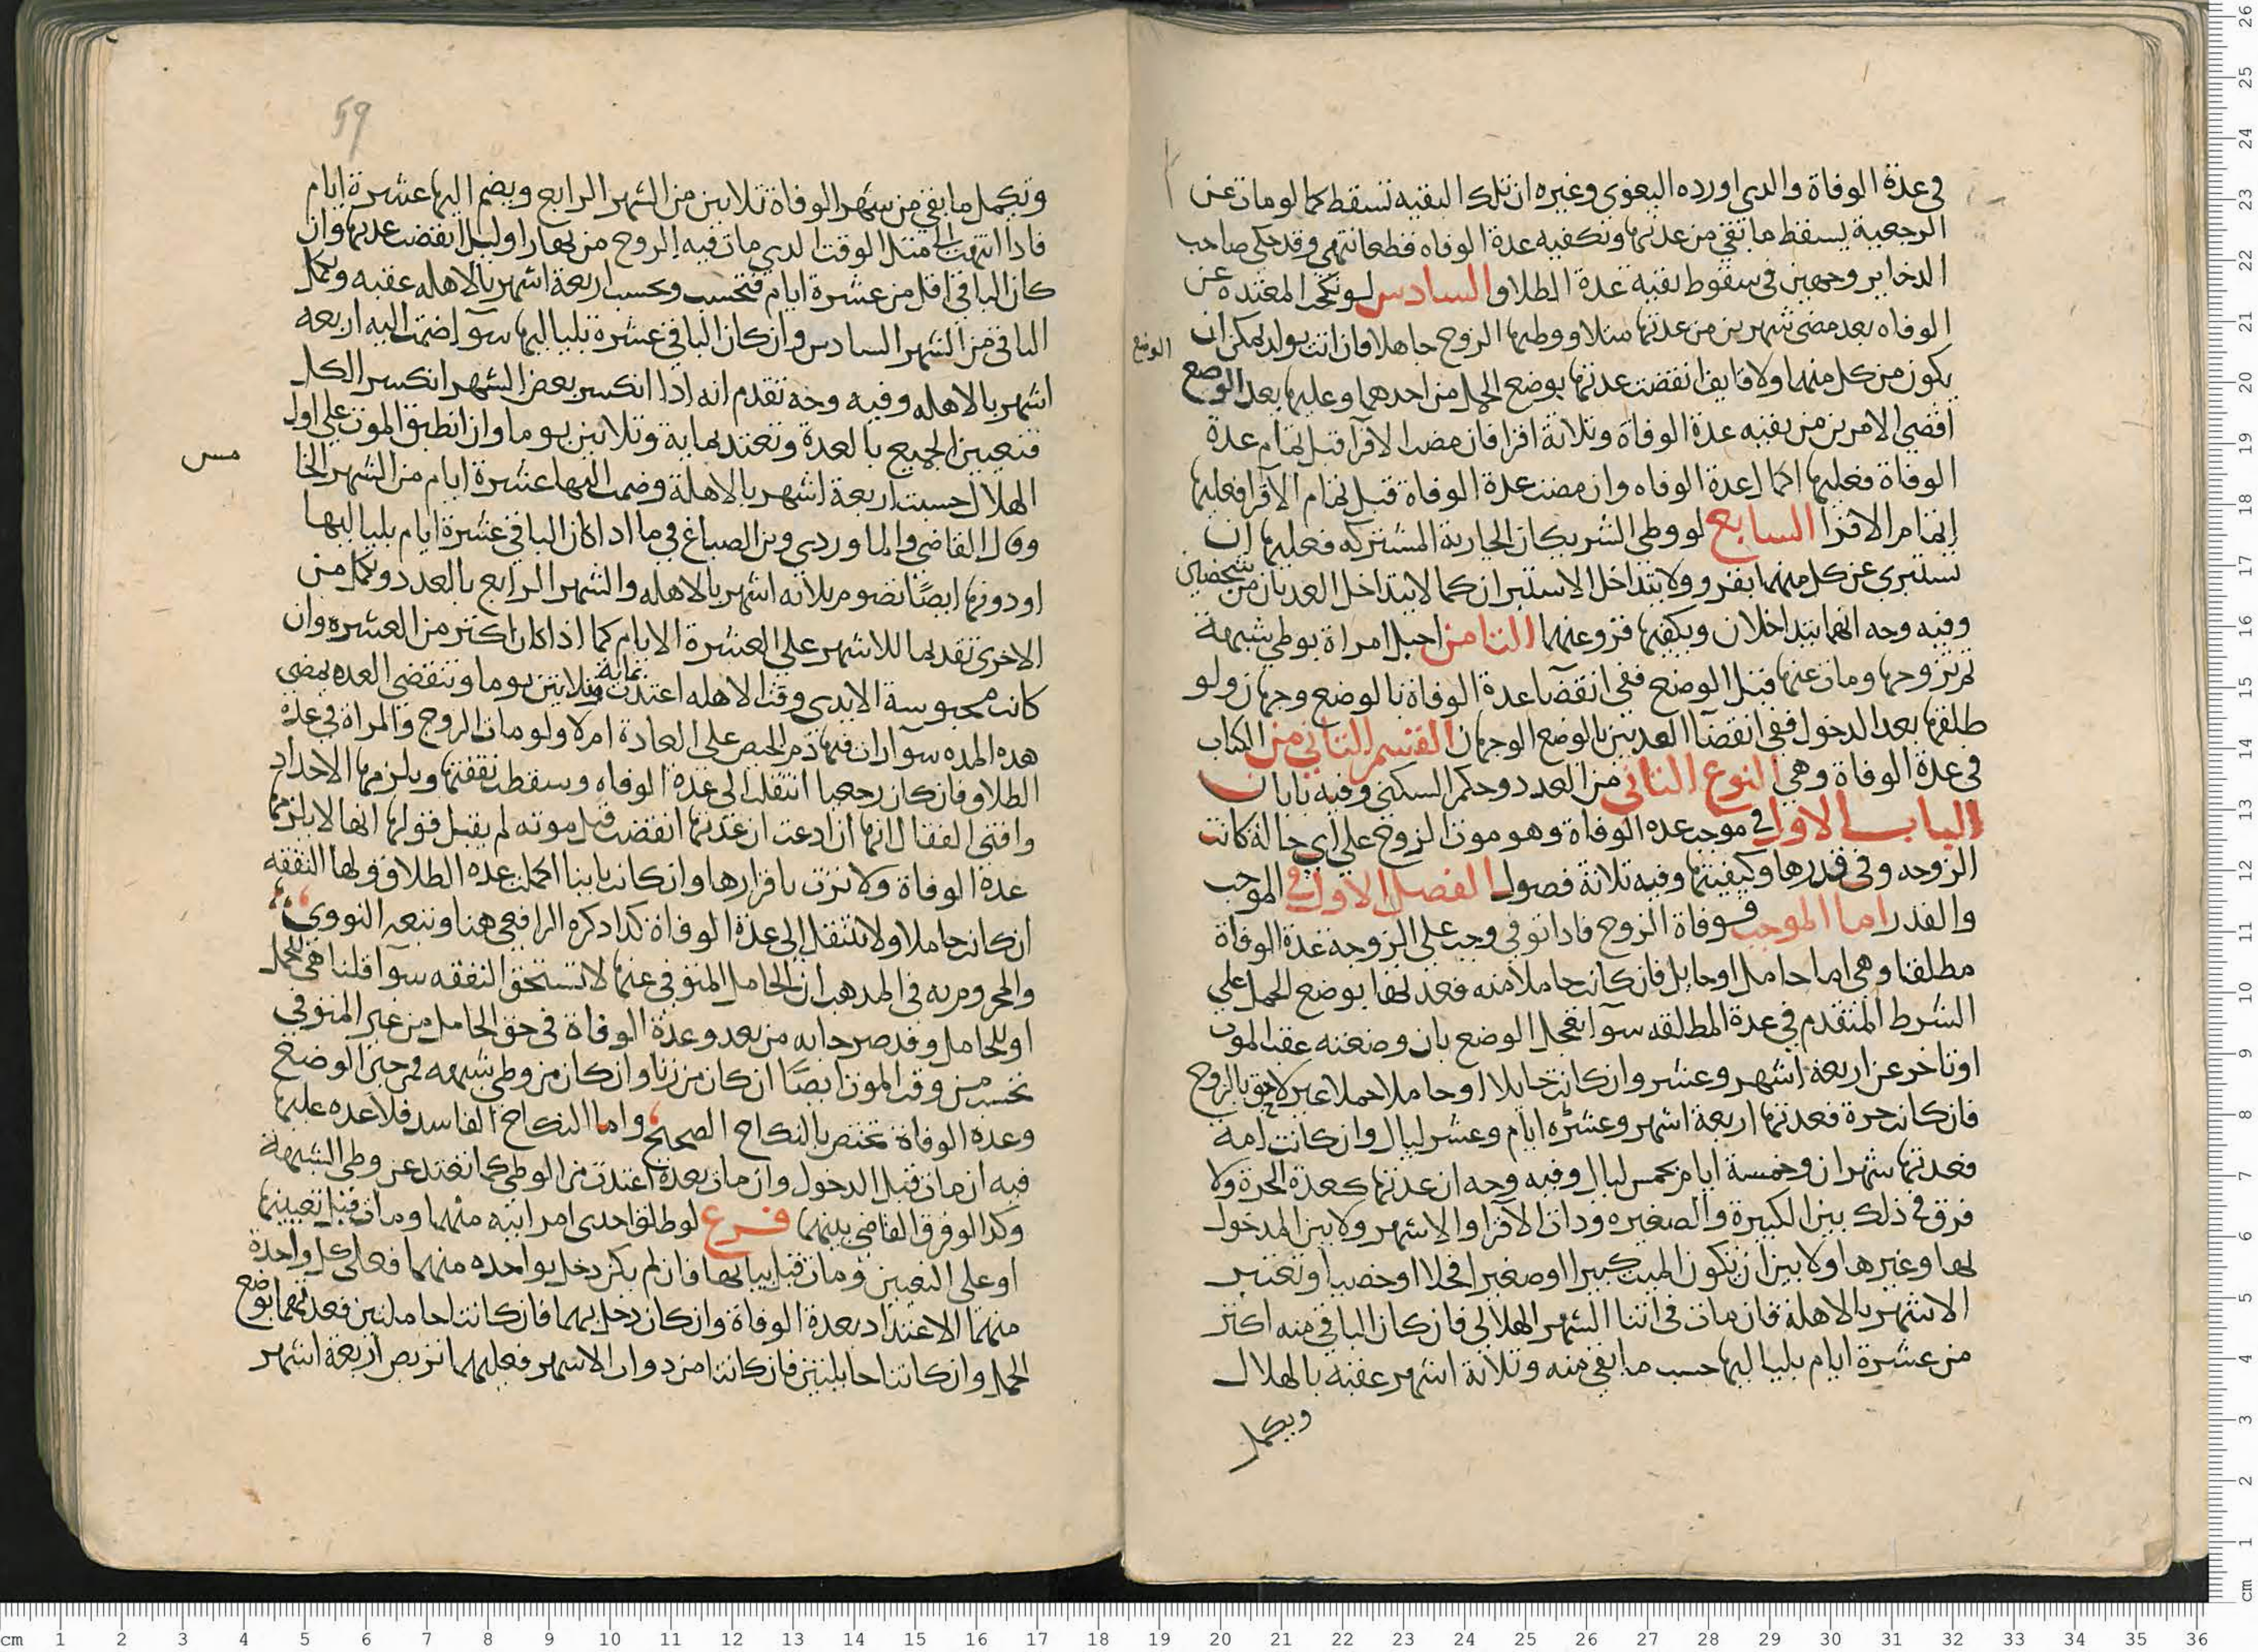 في عدة الوفاة والدي اورده البغوي وغيره ان تلك البقيه تسقط كما لو مات عن
الرجعية يسقط ما بقي من عدتها وتكفيه عدة الوفاه قطعا انتهى وقد حكى صاحب
الدخاير وجهين في سقوط بقيه عدة الطلاق السادس لو نكحت المعتده عن
الوفاه بعد مضى شهرين من عدتها مثلا ووطيها الزوج جاهلا فان اتت بولد يمكن ان
يكون من كل منهما ولا قايف انقضت عدتها بوضع الحمل من احدهما وعليها بعد الوضع
الوضع
اقصى الامرين من بقيه عدة الوفاة وثلاثة اقرا فان مضت الاقرا قبل تمام عدة
الوفاة فعليها اكمال عدة الوفاه وان مضت عدة الوفاة قبل تمام الاقرا فعليها
اتمام الاقرا السابع لو وطى الشريكان الجارية المشتركه فعليها ان
تستبري عن كل منهما بقرو ولا يتداخل الاستبران كما لا يتداخل العدتان من شخصين
وفيه وجه انهما يتداخلان ويكفيها قرو عنهما الثامن احبل امراة بوطي شبهة
ثم تزوجها ومات عنها قبل الوضع ففي انقضا عدة الوفاة بالوضع وجهان ولو
طلقها بعد الدخول ففي انقضا العدتين بالوضع الوجهان القسم الثاني من الكتاب
في عدة الوفاة وهي النوع الثاني من العدد وحكم السكنى وفيه بابان
الباب الاول في موجب عده الوفاة وهو موت الزوج على اي حالة كانت
الزوجه وفي قدرها وكيفيتها وفيه ثلاثة فصول الفصل الاول في الموجب
والقدر اما الموجب فوفاة الزوج فاذا توفي وجب على الزوجة عدة الوفاة
مطلقا وهي اما حامل او حايل فان كانت حاملا منه فعدتها بوضع الحمل على
الشرط المتقدم في عدة المطلقه سوا تعجل الوضع بان وضعته عقب الموت
او تاخر عن اربعة اشهر وعشر وان كانت حايلا او حاملا حملا غير لاحق بالزوج
فان كانت حرة فعدتها اربعة اشهر وعشره ايام وعشر ليال وان كانت امة
فعدتها شهران وخمسة ايام بخمس ليال وفيه وجه ان عدتها كعدة الحرة ولا
فرق في ذلك بين الكبيرة والصغيره وذات الاقرا والاشهر ولا بين المدخول
بها وغيرها ولا بين ان يكون الميت كبيرا او صغيرا فحلا او خصيا وتعتبر
الاشهر بالاهلة فان مات في اثنا الشهر الهلالي فان كان الباقي منه اكثر
من عشرة ايام بلياليها حسب ما بقي منه وثلاثة اشهر عقبه بالهلال
ويكمل
59
وتكمل ما بقي من شهر الوفاة ثلاثين من الشهر الرابع ويضم اليها عشرة ايام
فاذا انتهت الى مثل الوقت الدي مات فيه الزوج من نهار او ليل انقضت عدتها وان
كان الباقي اقل من عشرة ايام فتحسب وتحسب اربعة اشهر بالاهله عقبه وتكمل
الباقي من الشهر السادس وان كان الباقي عشرة بلياليها سوا ضمت اليه اربعه
اشهر بالاهله وفيه وجه تقدم انه اذا انكسر بعض الشهر انكسر الكل
فتعيين الجميع بالعدة وتعتد بماية وثلاثين يوما وان انطبق الموت على اول
الهلال حسبت اربعة اشهر بالاهلة وضمت اليها عشرة ايام من الشهر الخا
مس
وقال القاضي والماوردي وبن الصباغ في ما اذا كان الباقي عشرة ايام بلياليها
او دونها ايضا تضوم ثلاثه اشهر بالاهله والشهر الرابع بالعدد وتكمل من
الاخرى تقديما للاشهر على العشرة الايام كما اذا كان اكثر من العشره وان
كانت محبوسة لا تدري وقت الاهله اعتدت بماية وثلاثين يوما وتنقضي العده بمضى
هذه المده سوا رات فيها دم الحيض على العادة ام لا ولو مات الزوج والمراة في عدة
الطلاق فان كان رجعيا انتقلت الى عدة الوفاه وسقطت نفقتها ويلزمها الاحداد
وافتى القفال انها ان ادعت ان عدتها انقضت قبل موته لم يقبل قولها انها لا يلزمها
عدة الوفاة ولا ترث باقرارها وان كانت باينا اكملت عده الطلاق ولها النفقه
ان كانت حاملا ولا تنتقل الى عدة الوفاة كذا ذكره الرافعي هنا وتبعه النووي
والمجزوم به في المذهب ان الحامل المتوفي عنها لا تستحق النفقه سوا قلنا هي للحمل
او للحامل وقد صرحا به من بعد وعدة الوفاة في حق الحامل من غير المتوفي
تحسب من وقت الموت ايضا ان كان من زنا وان كان من وطي شبهه فمن حين الوضع
وعدة الوفاة تختص بالنكاح الصحيح واما النكاح الفاسد فلا عده عليها
فيه ان مات قبل الدخول وان مات بعده اعتدت من الوطي كما تعتد عن وطي الشبهة
وكذا لو فرق القاضي بينهما فرع لو طلق احدى امراتيه منهما ومات قبل تعيينها
او على التعيين ومات قبل بيانها فان لم يكن دخل بواحده منهما فعلى كل واحدة
منهما الاعتداد بعدة الوفاة وان كان دخل بهما فان كانتا حاملتين فعدتهما بوضع
الحمل وان كانتا حايلتين فان كانتا من ذوات الاشهر فعليهما تربص اربعة اشهر